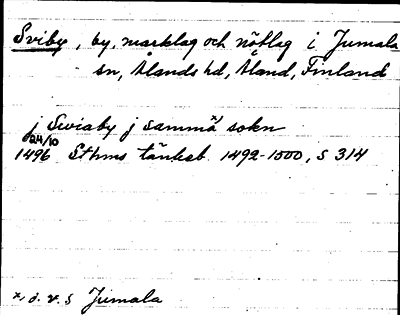 Sviby, by, marklag och nötlag i Jumala
sn, Ålands hd, Åland, Finland
j Swiaby j samma x) sokn
24/10
1496 Sthms tänkeb. 1492-1500, s 314
x) d.v.s Jumala